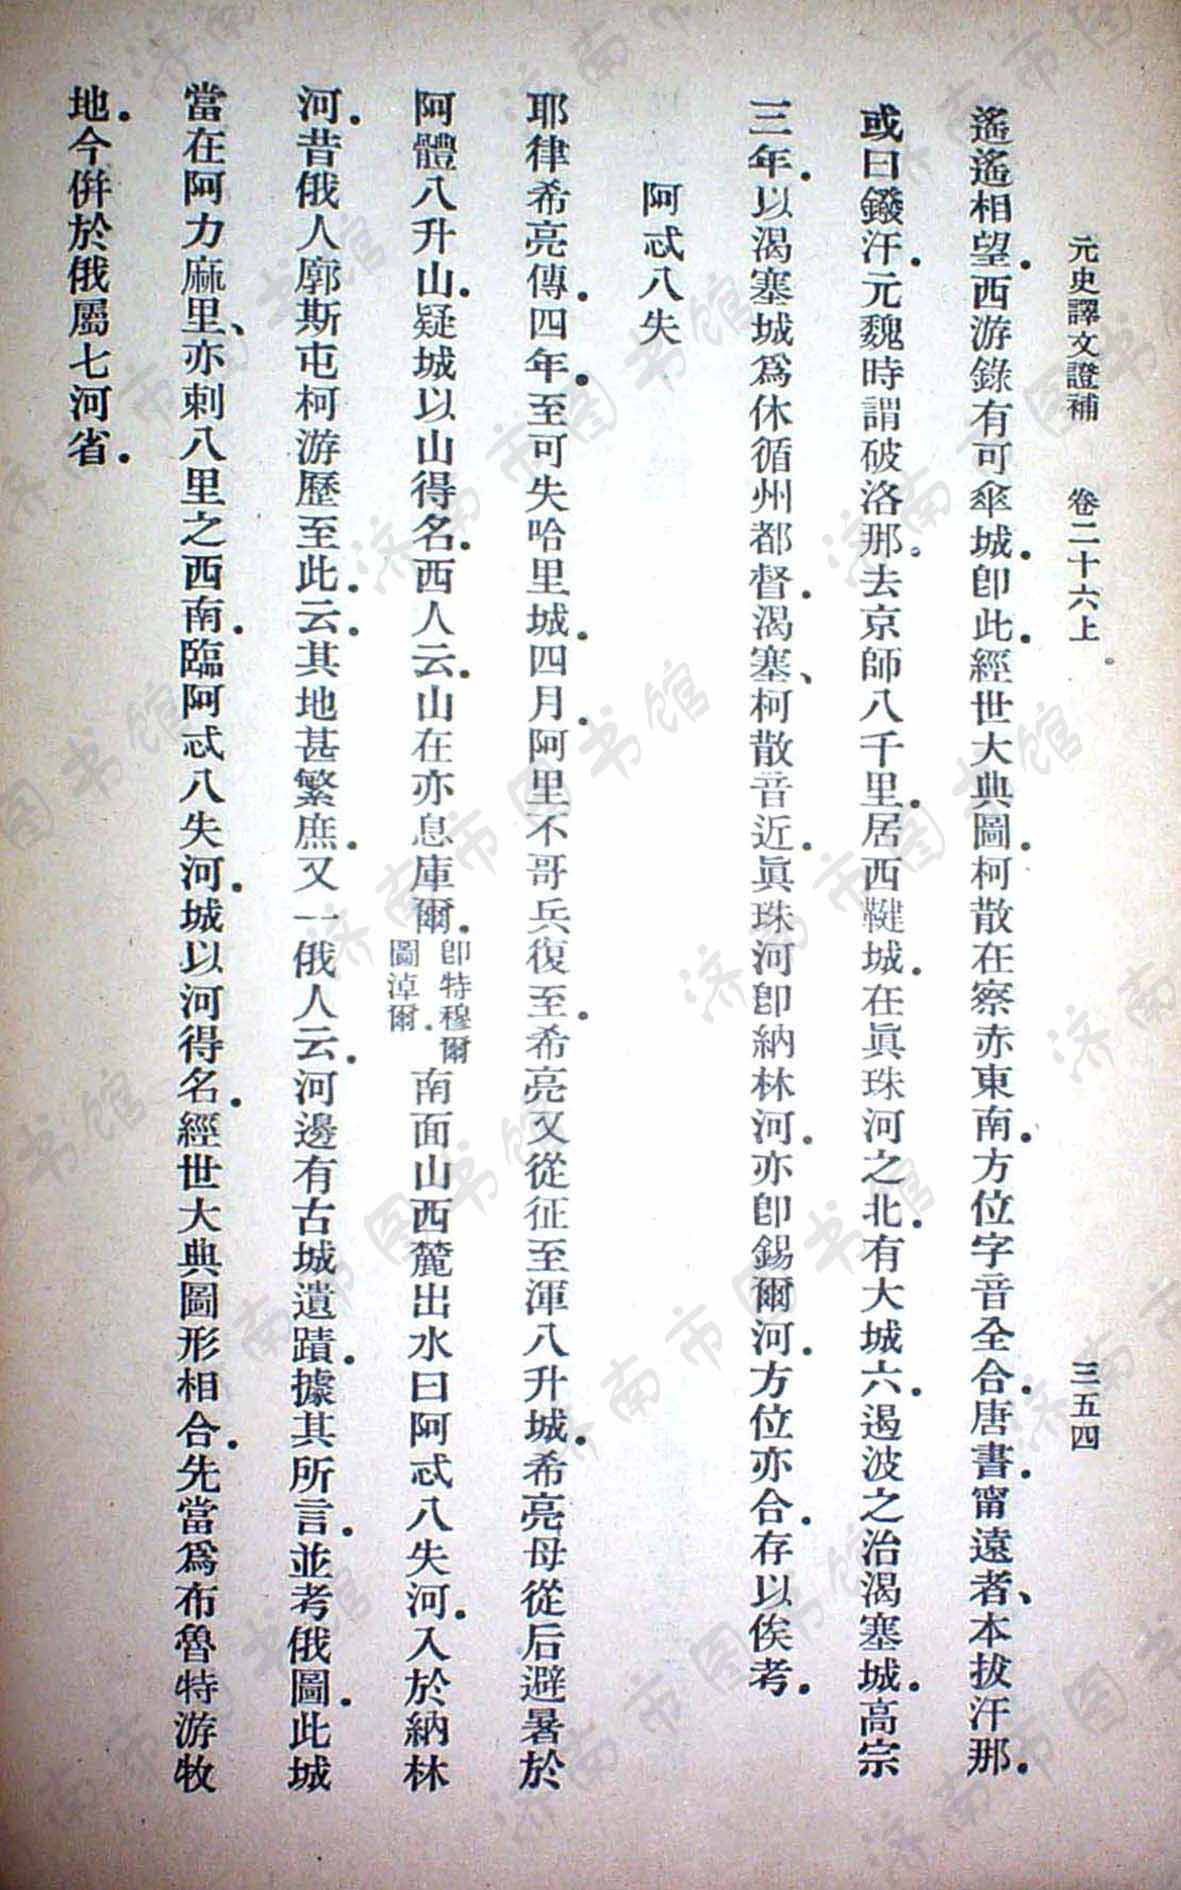 元史譯文證補 卷二十六上 三五四
遙遙相望。西游錄有可傘城。卽此。經世大典圖。柯散在察赤東南。方位字音全合。唐書。甯遠者、本拔汗那。
或曰鏺汗。元魏時謂破洛那。去京師八千里。居西鞬城。在眞珠河之北。有大城六。遏波之治渴塞城。高宗
三年。以渴塞城爲休循州都督。渴塞、柯散音近。眞珠河卽納林河。亦卽錫爾河。方位亦合。存以俟考。
阿忒八失
耶律希亮傳。四年。至可失哈里城。四月。阿里不哥兵復至。希亮又從征至渾八升城。希亮母從后避暑於
阿體八升山。疑城以山得名。西人云。山在亦息庫爾。卽特穆爾圖淖爾。南面山西麓出水曰阿忒八失河。入於納林
河。昔俄人廓斯屯柯游歷至此。云。其地甚繁庶。又一俄人云。河邊有古城遺蹟。據其所言。並考俄圖。此城
當在阿力麻里、亦剌八里之西南。臨阿忒八失河。城以河得名。經世大典圖形相合。先當爲布魯特游牧
地。今併於俄屬七河省。
济南市图书馆